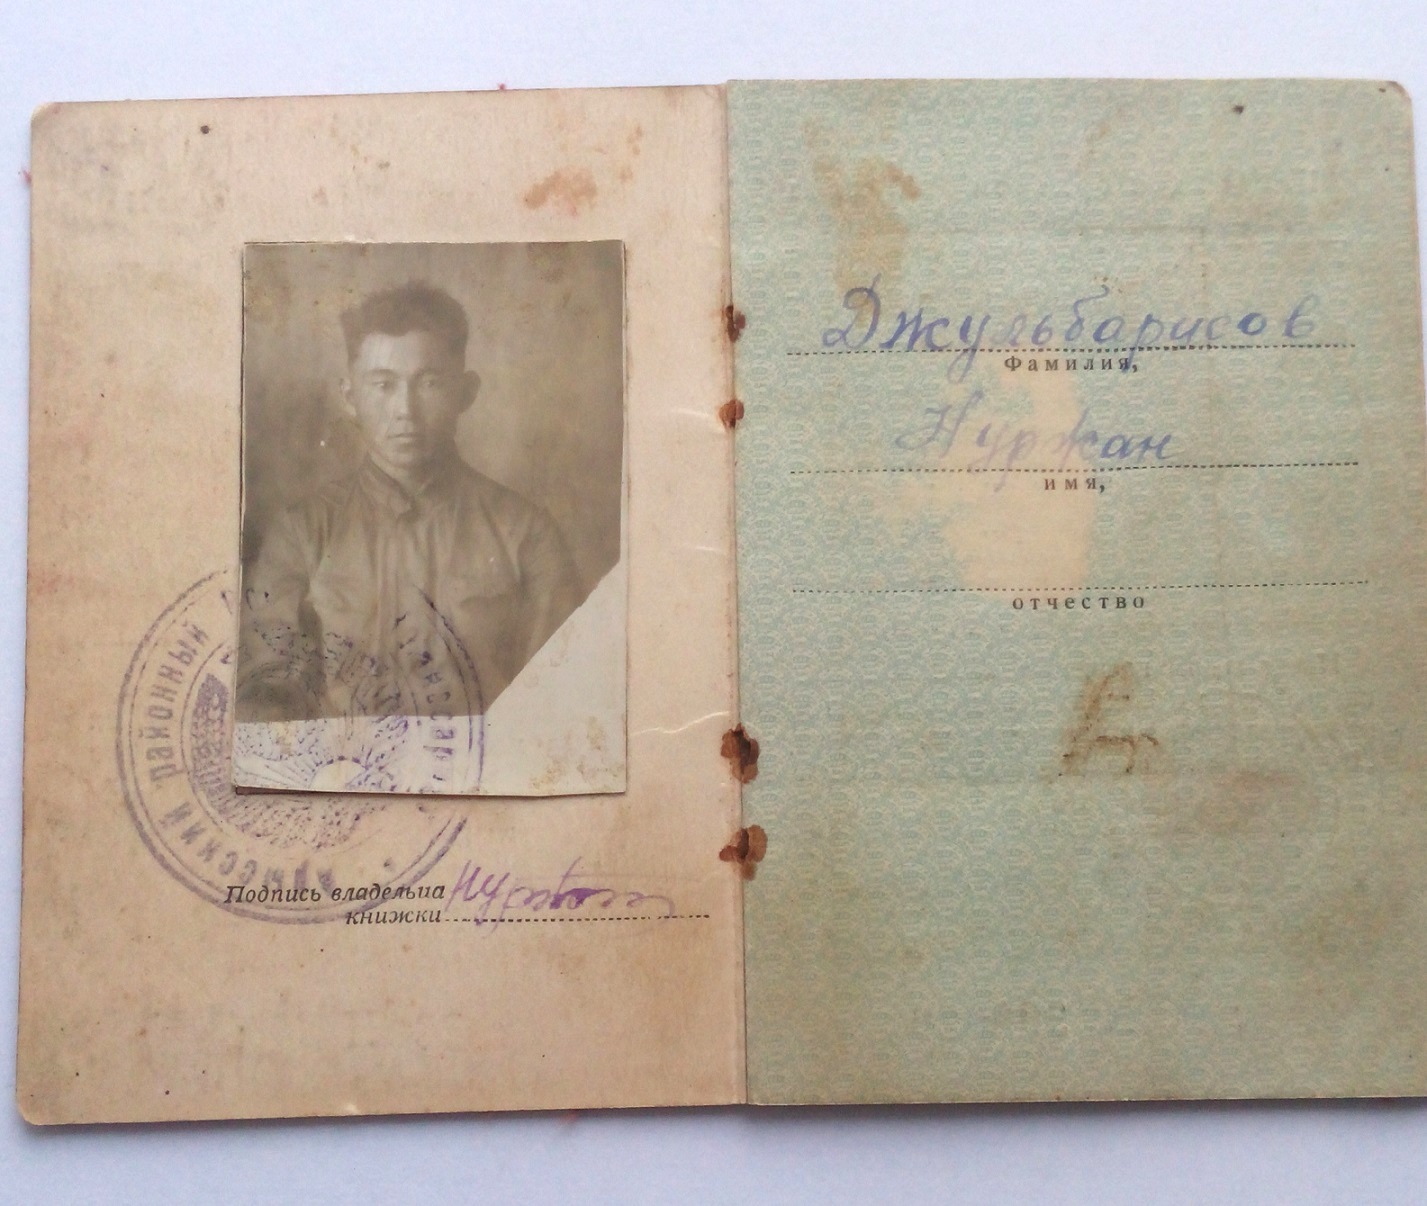 районный
Подпись владельца
книжки
Джульбарисов
Фамилия,
Нуржан
имя,
отчество